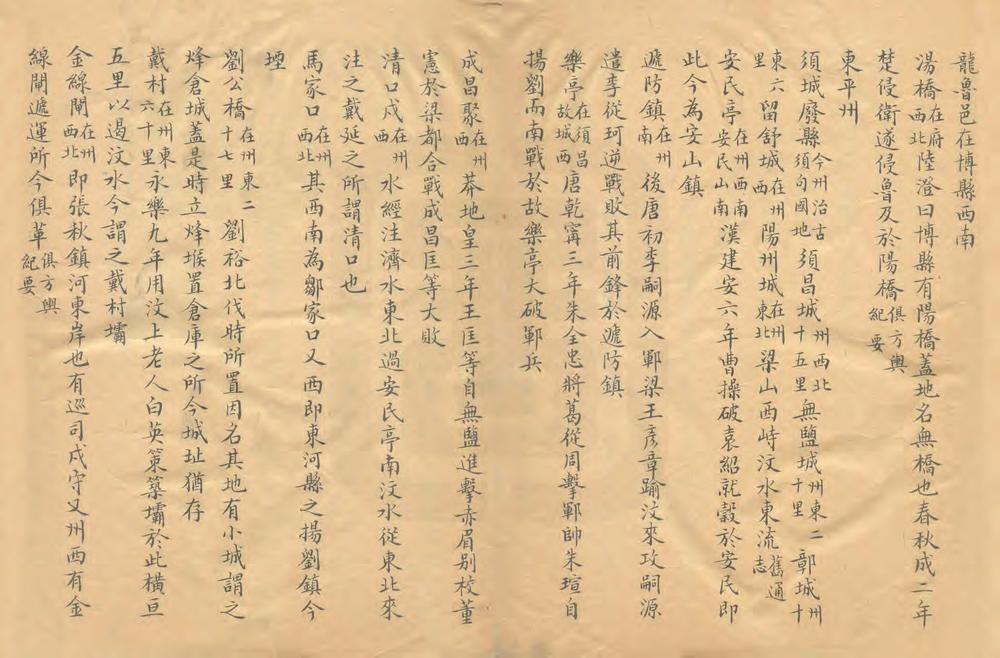 龍魯邑在博縣西南
湯橋在府西北陸澄曰博縣有陽橋蓋地名無橋也春秋成二年
楚侵衛遂侵魯及於陽橋俱方輿紀要
東平州
須城廢縣今州治古須句國地須昌城州西北十五里無鹽城州東二十里郈城州東六十里
留舒城在州西陽州城在州東北梁山西峙汶水東流舊通志
安民亭在州西南安民山南漢建安六年曹操破袁紹就穀於安民即
此今為安山鎮
遞防鎮在州南後唐初李嗣源入鄆梁王彥章踰汶來攻嗣源
遣李從珂逆戰敗其前鋒於遞防鎮
樂亭在須昌故城西唐乾寧三年朱全忠將葛從周擊鄆帥朱瑄自
揚劉而南戰於故樂亭大破鄆兵
成昌聚在州西莽地皇三年王匡等自無鹽進擊赤眉別校董
憲於梁都合戰成昌匡等大敗
清口戍在州西水經注濟水東北過安民亭南汶水從東北來
注之戴延之所謂清口也
馬家口在州西北其西南為鄒家口又西即東河縣之揚劉鎮今
堙
劉公橋在州東十七里二劉裕北伐時所置因名其地有小城謂之
烽倉城蓋是時立烽堠置倉庫之所今城址猶存
戴村在州東六十里永樂九年用汶上老人白英策築壩於此橫亘
五里以遏汶水今謂之戴村壩
金線閘在州西北即張秋鎮河東岸也有巡司戍守又州西有金
線閘遞運所今俱革俱方輿紀要